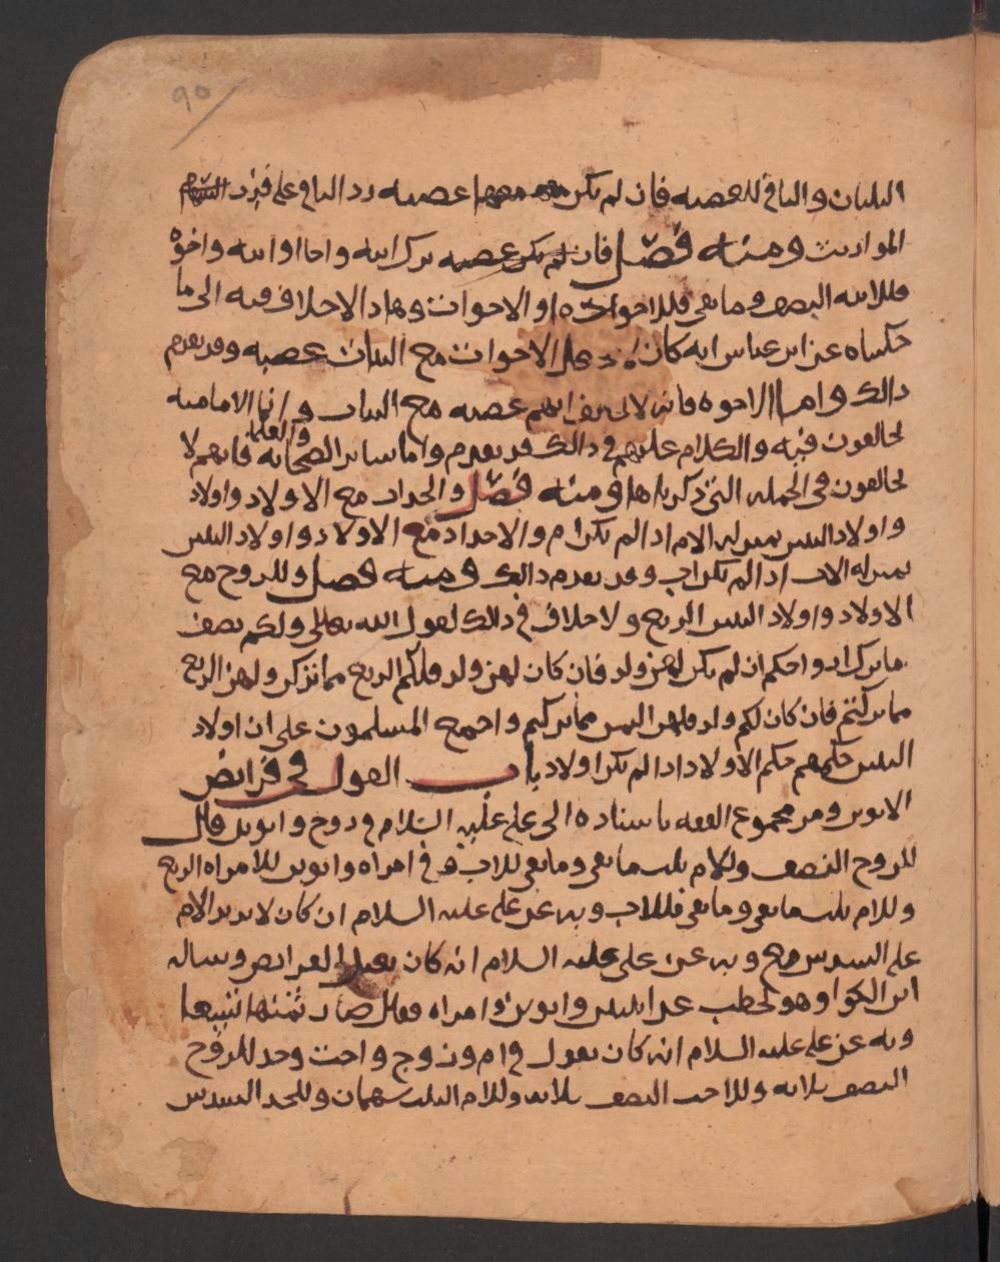 ٩٥
الثلثان والباقي للعصبة فان لم يكن معهما عصبه رد الباقي على قدر السهام
المواريث ومنه فصل فان لم يكن عصبه ترك ابنه واخا او ابنه واخوه
فللابنه النصف وما بقي فللاخوات او الاخوات وهاذ الاختلاف فيه الى ما
حكيناه عن ابن عباس انه كان لا يجعل الاخوات مع البنات عصبه وقد تقدم
ذالك واما الاخوه فانه لا خلاف انهم عصبه مع البنات وانما الاماميه
يخالفون فيه والكلام عليهم في ذالك قد تقدم واما سائر الصحابه والعلما فانهم لا
يخالفون في الجمله التي ذكرناها ومنه فصل والجدات مع الاولاد واولاد
واولاد البنين بمنزله الام اذا لم تكن ام والاجداد مع الاولاد واولاد البنين
بمنزله الاب اذا لم يكن اب وقد تقدم ذالك ومنه فصل وللزوج مع
الاولاد واولاد البنين الربع ولا خلاف في ذالك لقول الله تعالى ولكم نصف
ما ترك ازواجكم ان لم يكن لهن ولد فان كان لهن ولد فلكم الربع مما تركن ولهن الربع
مما تركتم فان كان لكم ولد فلهن الثمن مما تركتم واجمع المسلمون على ان اولاد
البنين حكمهم حكم الاولاد اذا لم يكن اولاد باب القول في فرائض
الابوين ومن مجموع الفقه باسناده الى علي عليه السلام في زوج وابوين قال
للزوج النصف وللام ثلث ما بقي وما بقي للاب وفي امراه وابوين للامراه الربع
وللام ثلث ما بقي وما بقي فللاب وبه عن علي عليه السلام ان كان لا يزيد الام
على السدس مع وبه عن علي عليه السلام انه كان يعيل الفرائض وساله
ابن الكوا وهو يخطب عن ابنتين وابوين وامراه فقال صار ثمنها تسعا
وبه عن علي عليه السلام انه كان يقول في ام وزوج واخت وجد للزوج
النصف ثلاثه وللاخت النصف ثلاثه وللام الثلث سهمان وللجد السدس